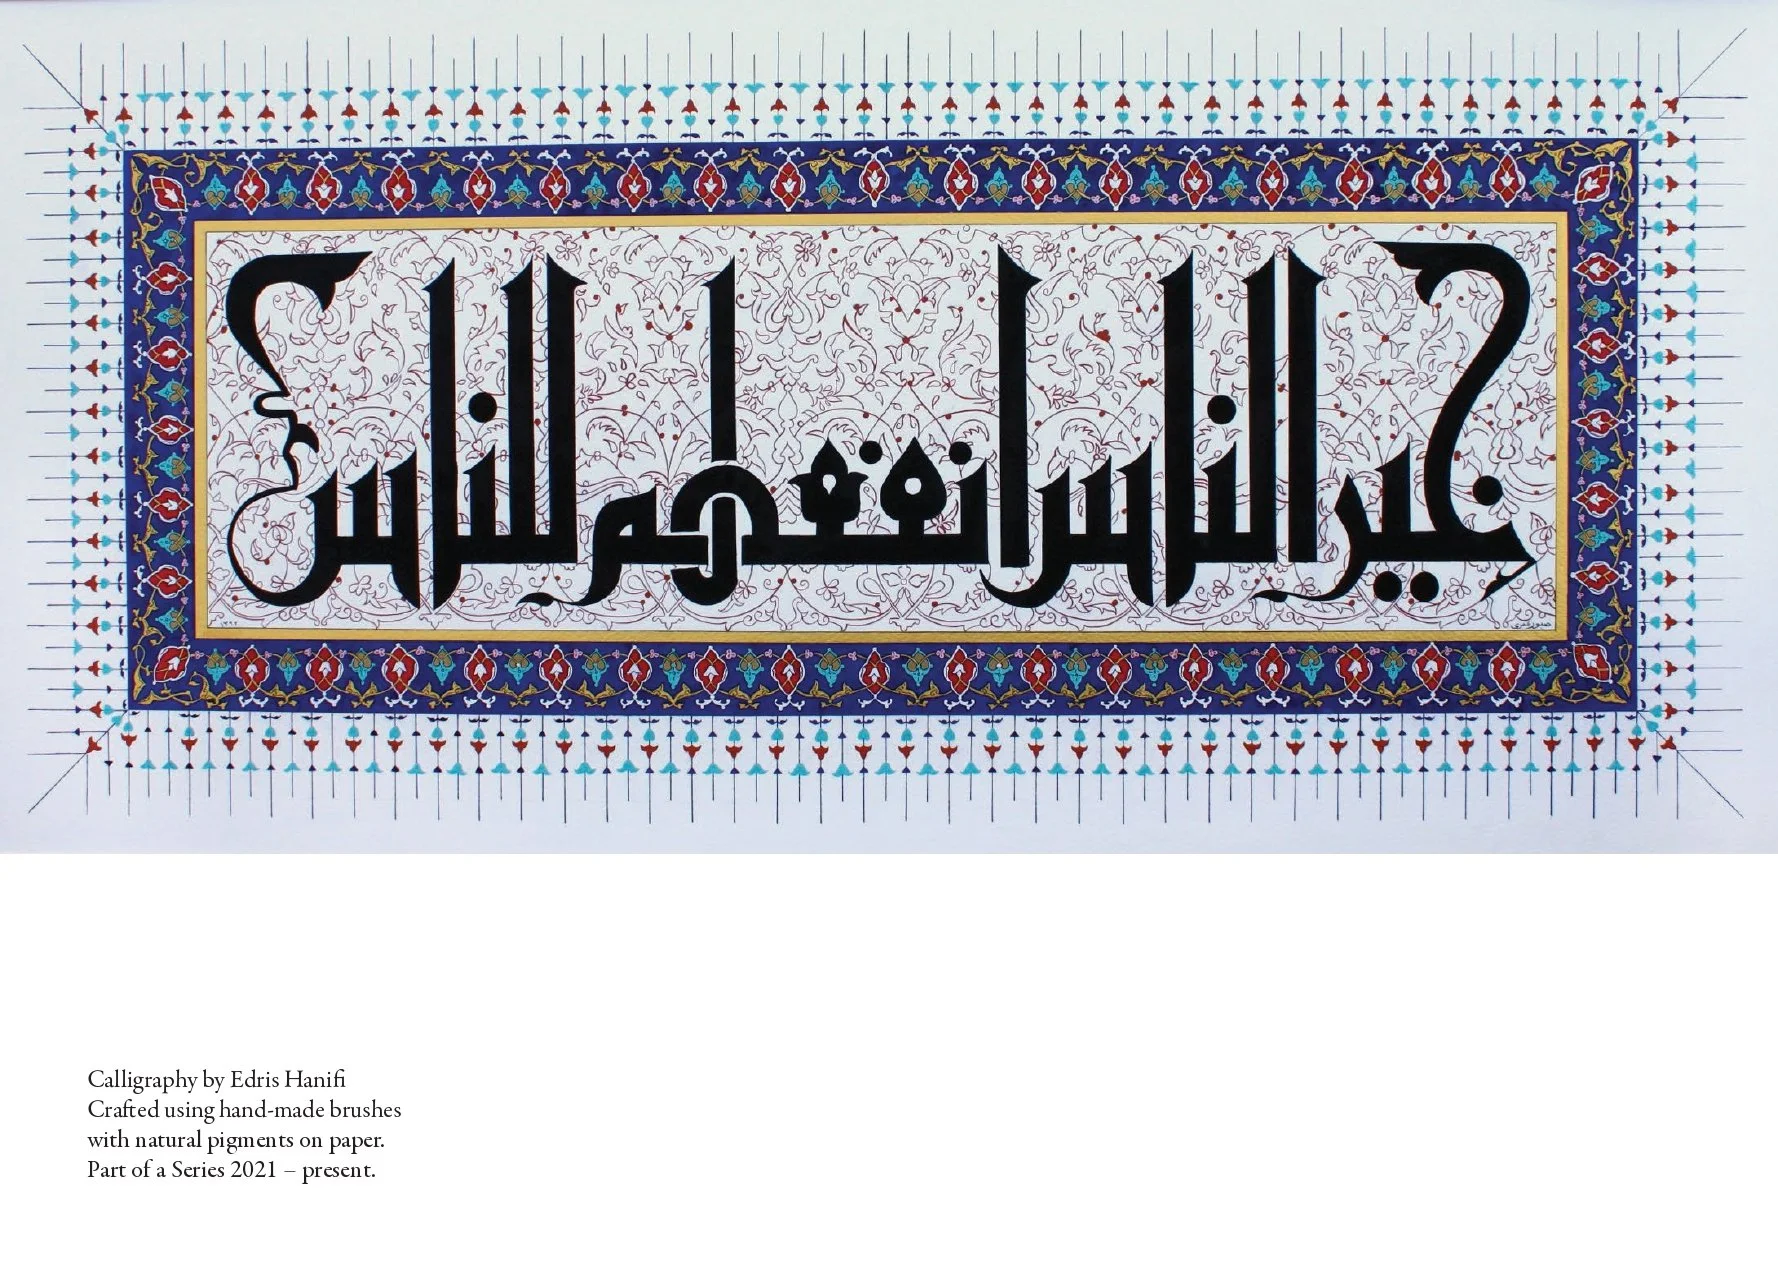 خير الناس انفعهم للناس
Calligraphy by Edris Hanifi
Crafted using hand-made brushes
with natural pigments on paper.
Part of a Series 2021 – present.